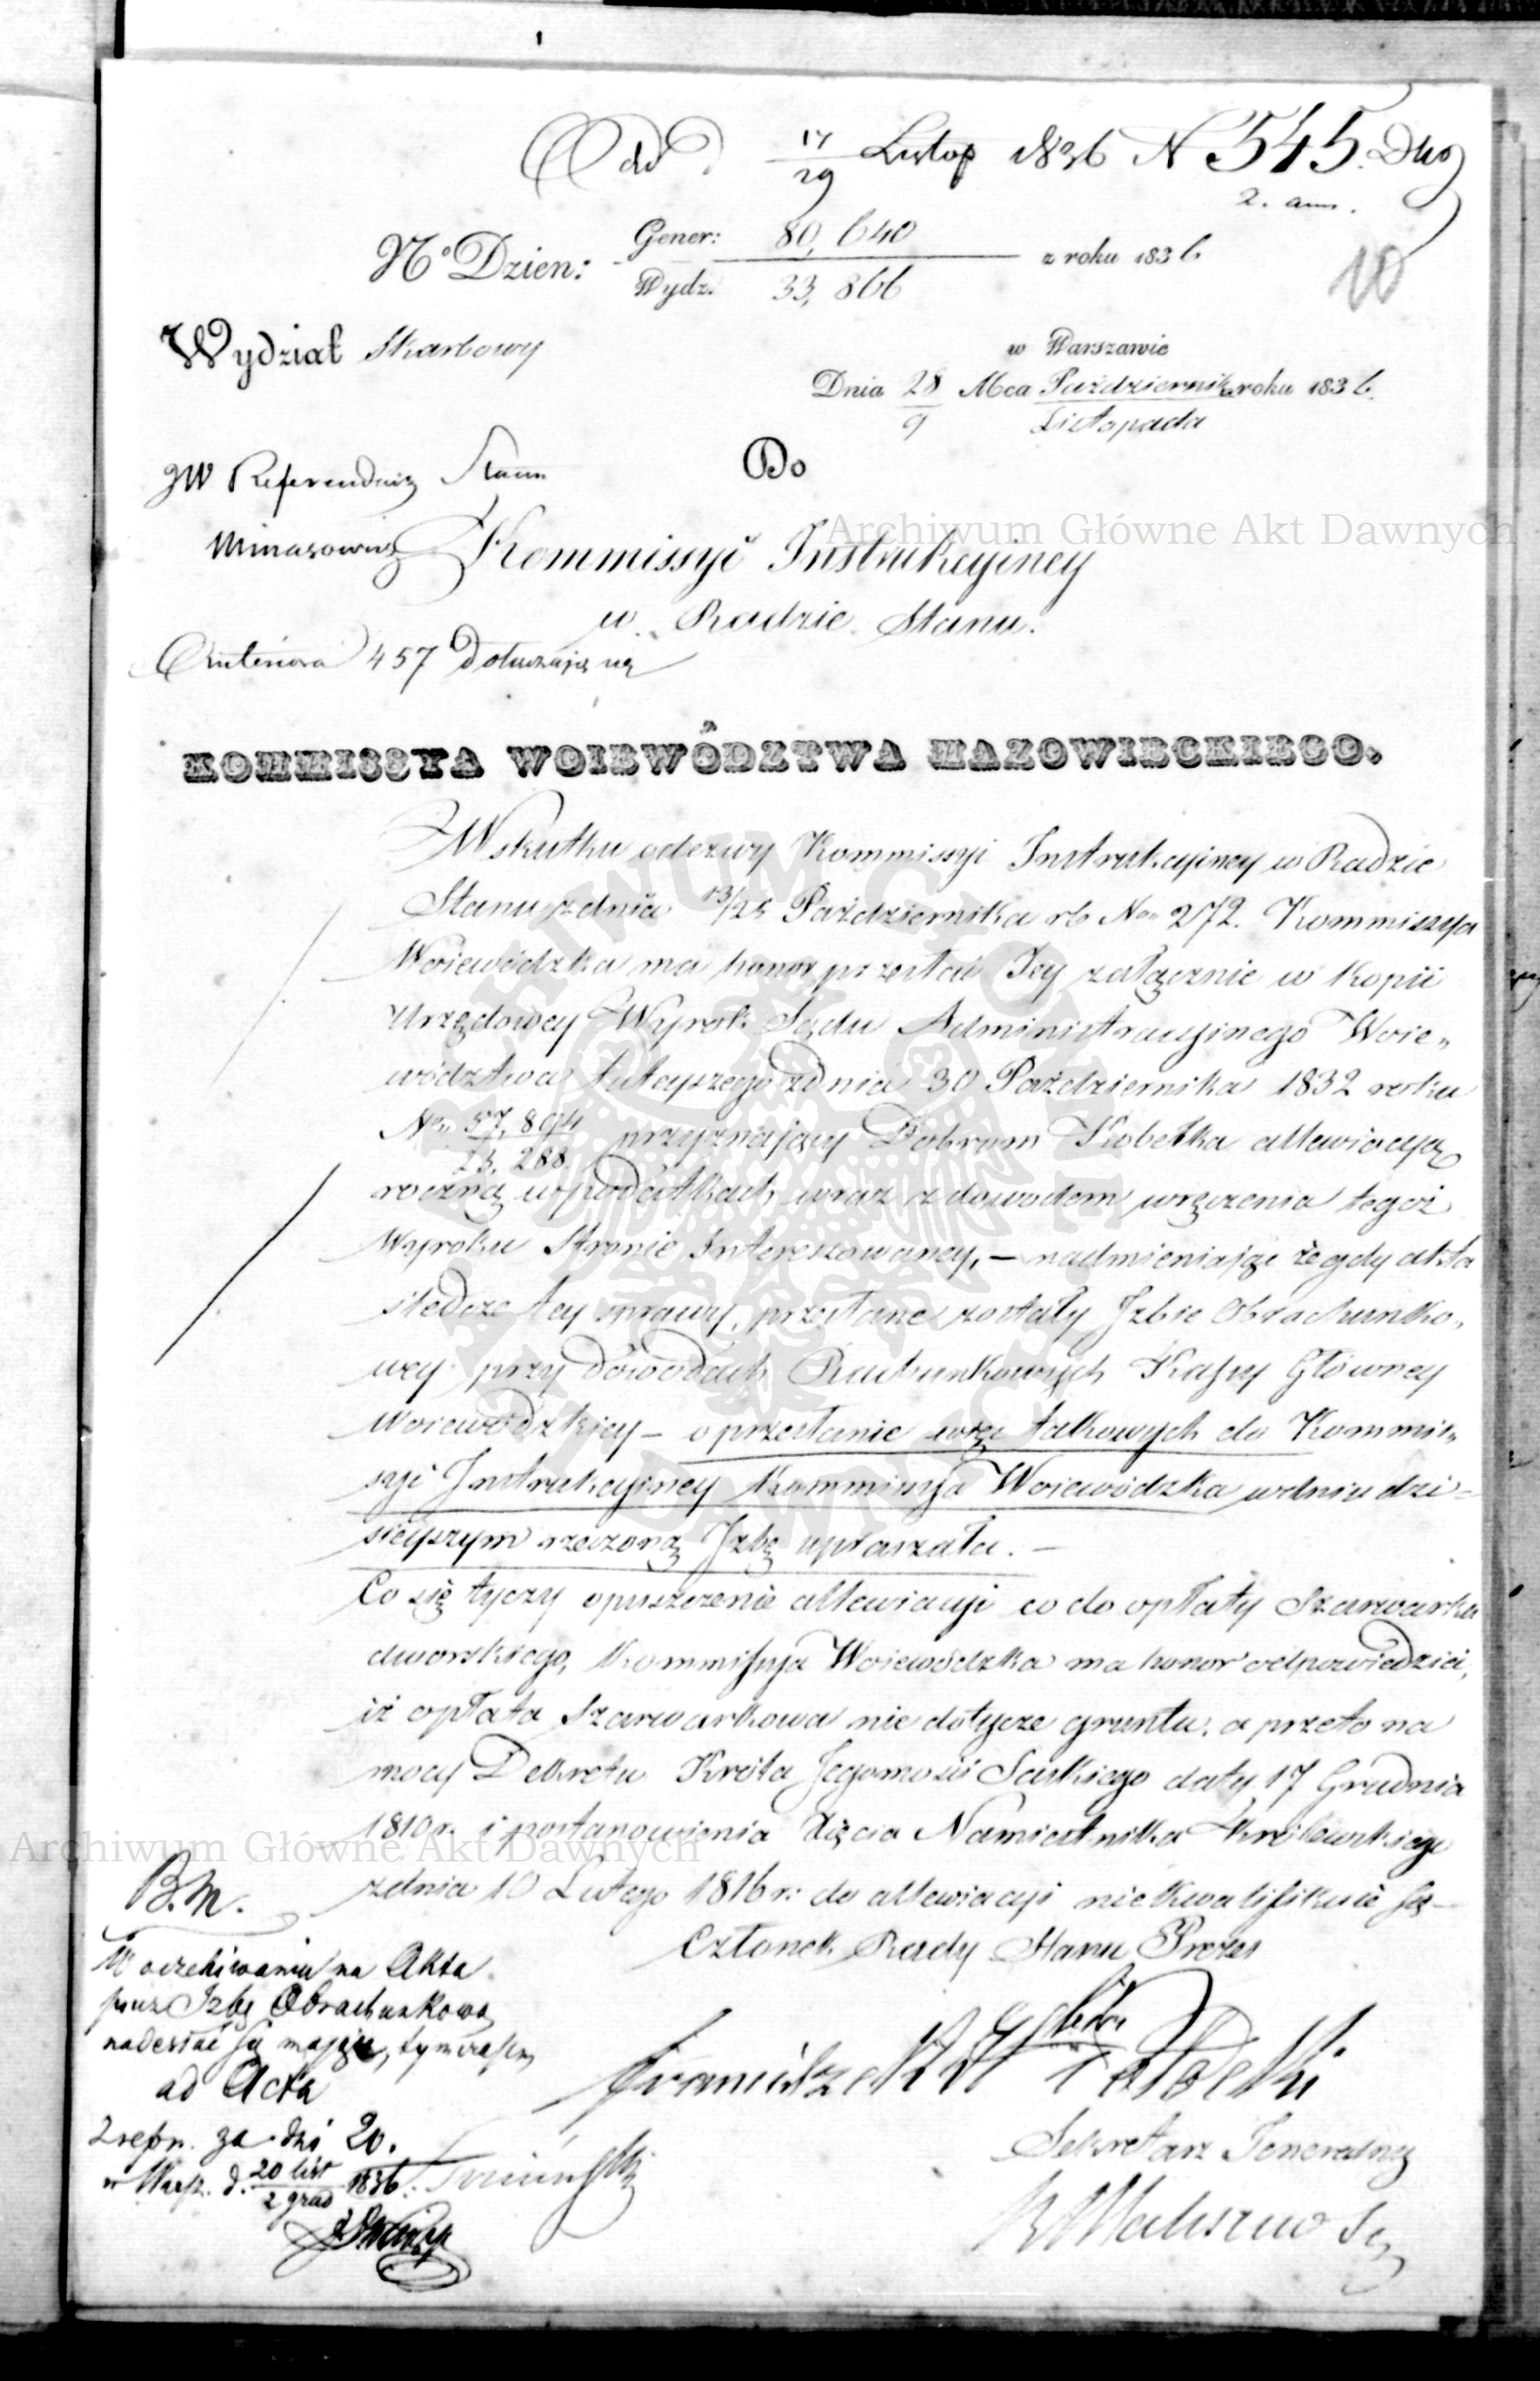 Odd 17/29 Listop 1836 N 545. Dko
2. ann.
10
No Dzien: Gener: 80,640 z roku 1836
Wydz: 33,866
Wydział Skarbowy
w Warszawie
Dnia 28 Mca Październik roku 1836.
9 Listopada
JW Referendarz Stanu
Minasowicz
Do
Kommissyi Instrukcyiney
w Radzie Stanu.
457 dołączają się
KOMMISSYA WOIEWÓDZTWA MAZOWIECKIEGO.
W skutku odezwy Kommissyi Instrukcyiney w Radzie
Stanu z dnia 13/25 Października rb No 272. Kommissya
Woiewódzka ma honor przesłać Jey załącznie w kopii
urzędowey Wyrok Sądu Administracyinego Woie„
wództwa tuteyszego z dnia 30 Października 1832 roku
No 57,894/23,288. przyznający Dobrom Kobełka allewiacyą
roczną w podatkach wraz z dowodem wręczenia tegoż
Wyroku Stronie Interessowaney, — nadmieniając że gdy akta
śledcze tey sprawy, przesłane zostały Izbie Obrachunko„
wey przy dowodach Rachunkowych Kassy Główney
Woiewódzkiey — o przesłanie więc takowych do Kommis„
syi Instrukcyiney Kommissya Woiewódzka w dniu dzi=
sieyszym rzeczoną Izbę upraszała. —
Co się tyczy opuszczenie allewiacyi co do opłaty Szarwarku
dworskiego, Kommissya Woiewódzka ma honor odpowiedzieć,
iż opłata Szarwarkowa nie dotycze gruntu, a przeto na
mocy Dekretu Króla Jegomości Saskiego daty 17 Grudnia
1810 r. i postanowienia Xięcia Namiestnika Królewskiego
z dnia 10 Lutego 1816 r: do allewiacyi nie kwalifikuie się —
Członek Rady Stanu Prezes
Franciszek Potocki
Sekretarz Jeneralny
B.M.
W oczekiwaniu na Akta
przez Izbę Obrachunkową
nadesłać się mające, tymczasem
ad Acta
Z refer. za dzi 20.
w Warsz. d. 20 list/2 grud 1836.
Archiwum Główne Akt Dawnych
Archiwum Główne Akt Dawnych
ARCHIWUM GŁÓWNE AKT DAWNYCH